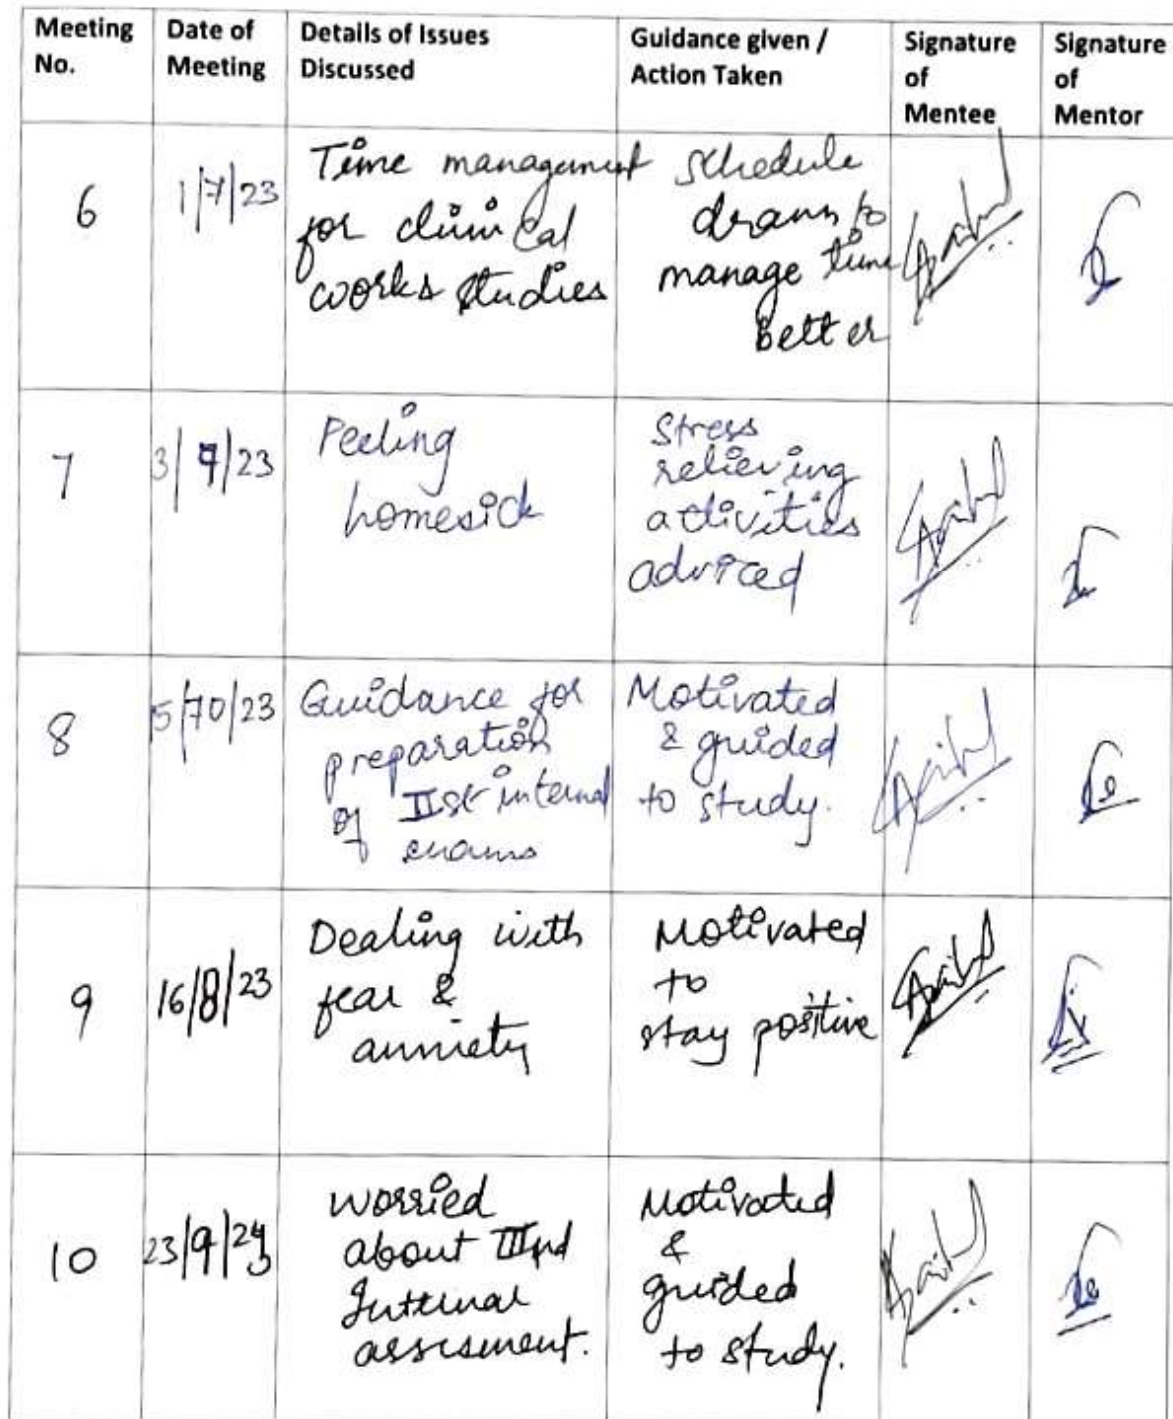 Meeting No.
Date of Meeting
Details of Issues Discussed
Guidance given / Action Taken
Signature of Mentee
Signature of Mentor
6
1/7/23
Time management
for clinical
works studies
Schedule
drawn to
manage time
better
7
3/ /23
Feeling
homesick
Stress
relieving
activities
adviced
8
Guidance for
preparation
of IIst internal
exams
Motivated
& guided
to study.
9
16/8/23
Dealing with
fear &
anxiety
Motivated
to
stay positive
10
23/9/
Worried
about IIIrd
Internal
assesment.
Motivated
&
guided
to study.